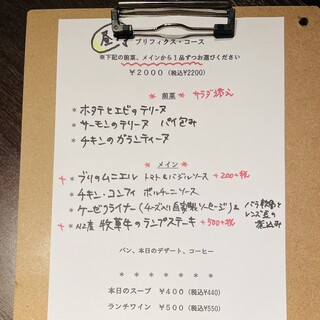 昼 プリフィクス・コース
※下記の前菜、メインから1品ずつお選びください
￥2000（税込¥2200）
＊ 前菜 ＊ サラダ添え
＊ ホタテとエビのテリーヌ
＊ サーモンのテリーヌ パイ包み
＊ チキンのガランティーヌ
＊ メイン ＊
＊ ブリのムニエル トマト&バジルソース +200+税
＊ チキン・コンフィ ポルチーニソース
＊ ケーゼクライナー(チーズ入り自家製ソーセージ)& バラ軟骨とレンズ豆の煮込み
＊ NZ産 牧草牛のランプステーキ +500+税
パン、本日のデザート、コーヒー
＊ ＊ ＊ ＊ ＊ ＊ ＊
本日のスープ ￥400（税込¥440）
ランチワイン ￥500（税込¥550）